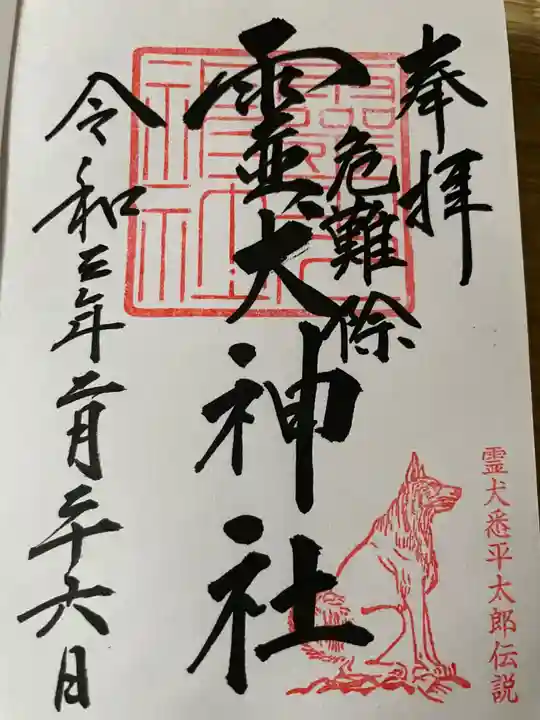 奉拝
危難除
霊犬神社
令和五年二月二十六日
霊犬悉平太郎伝説